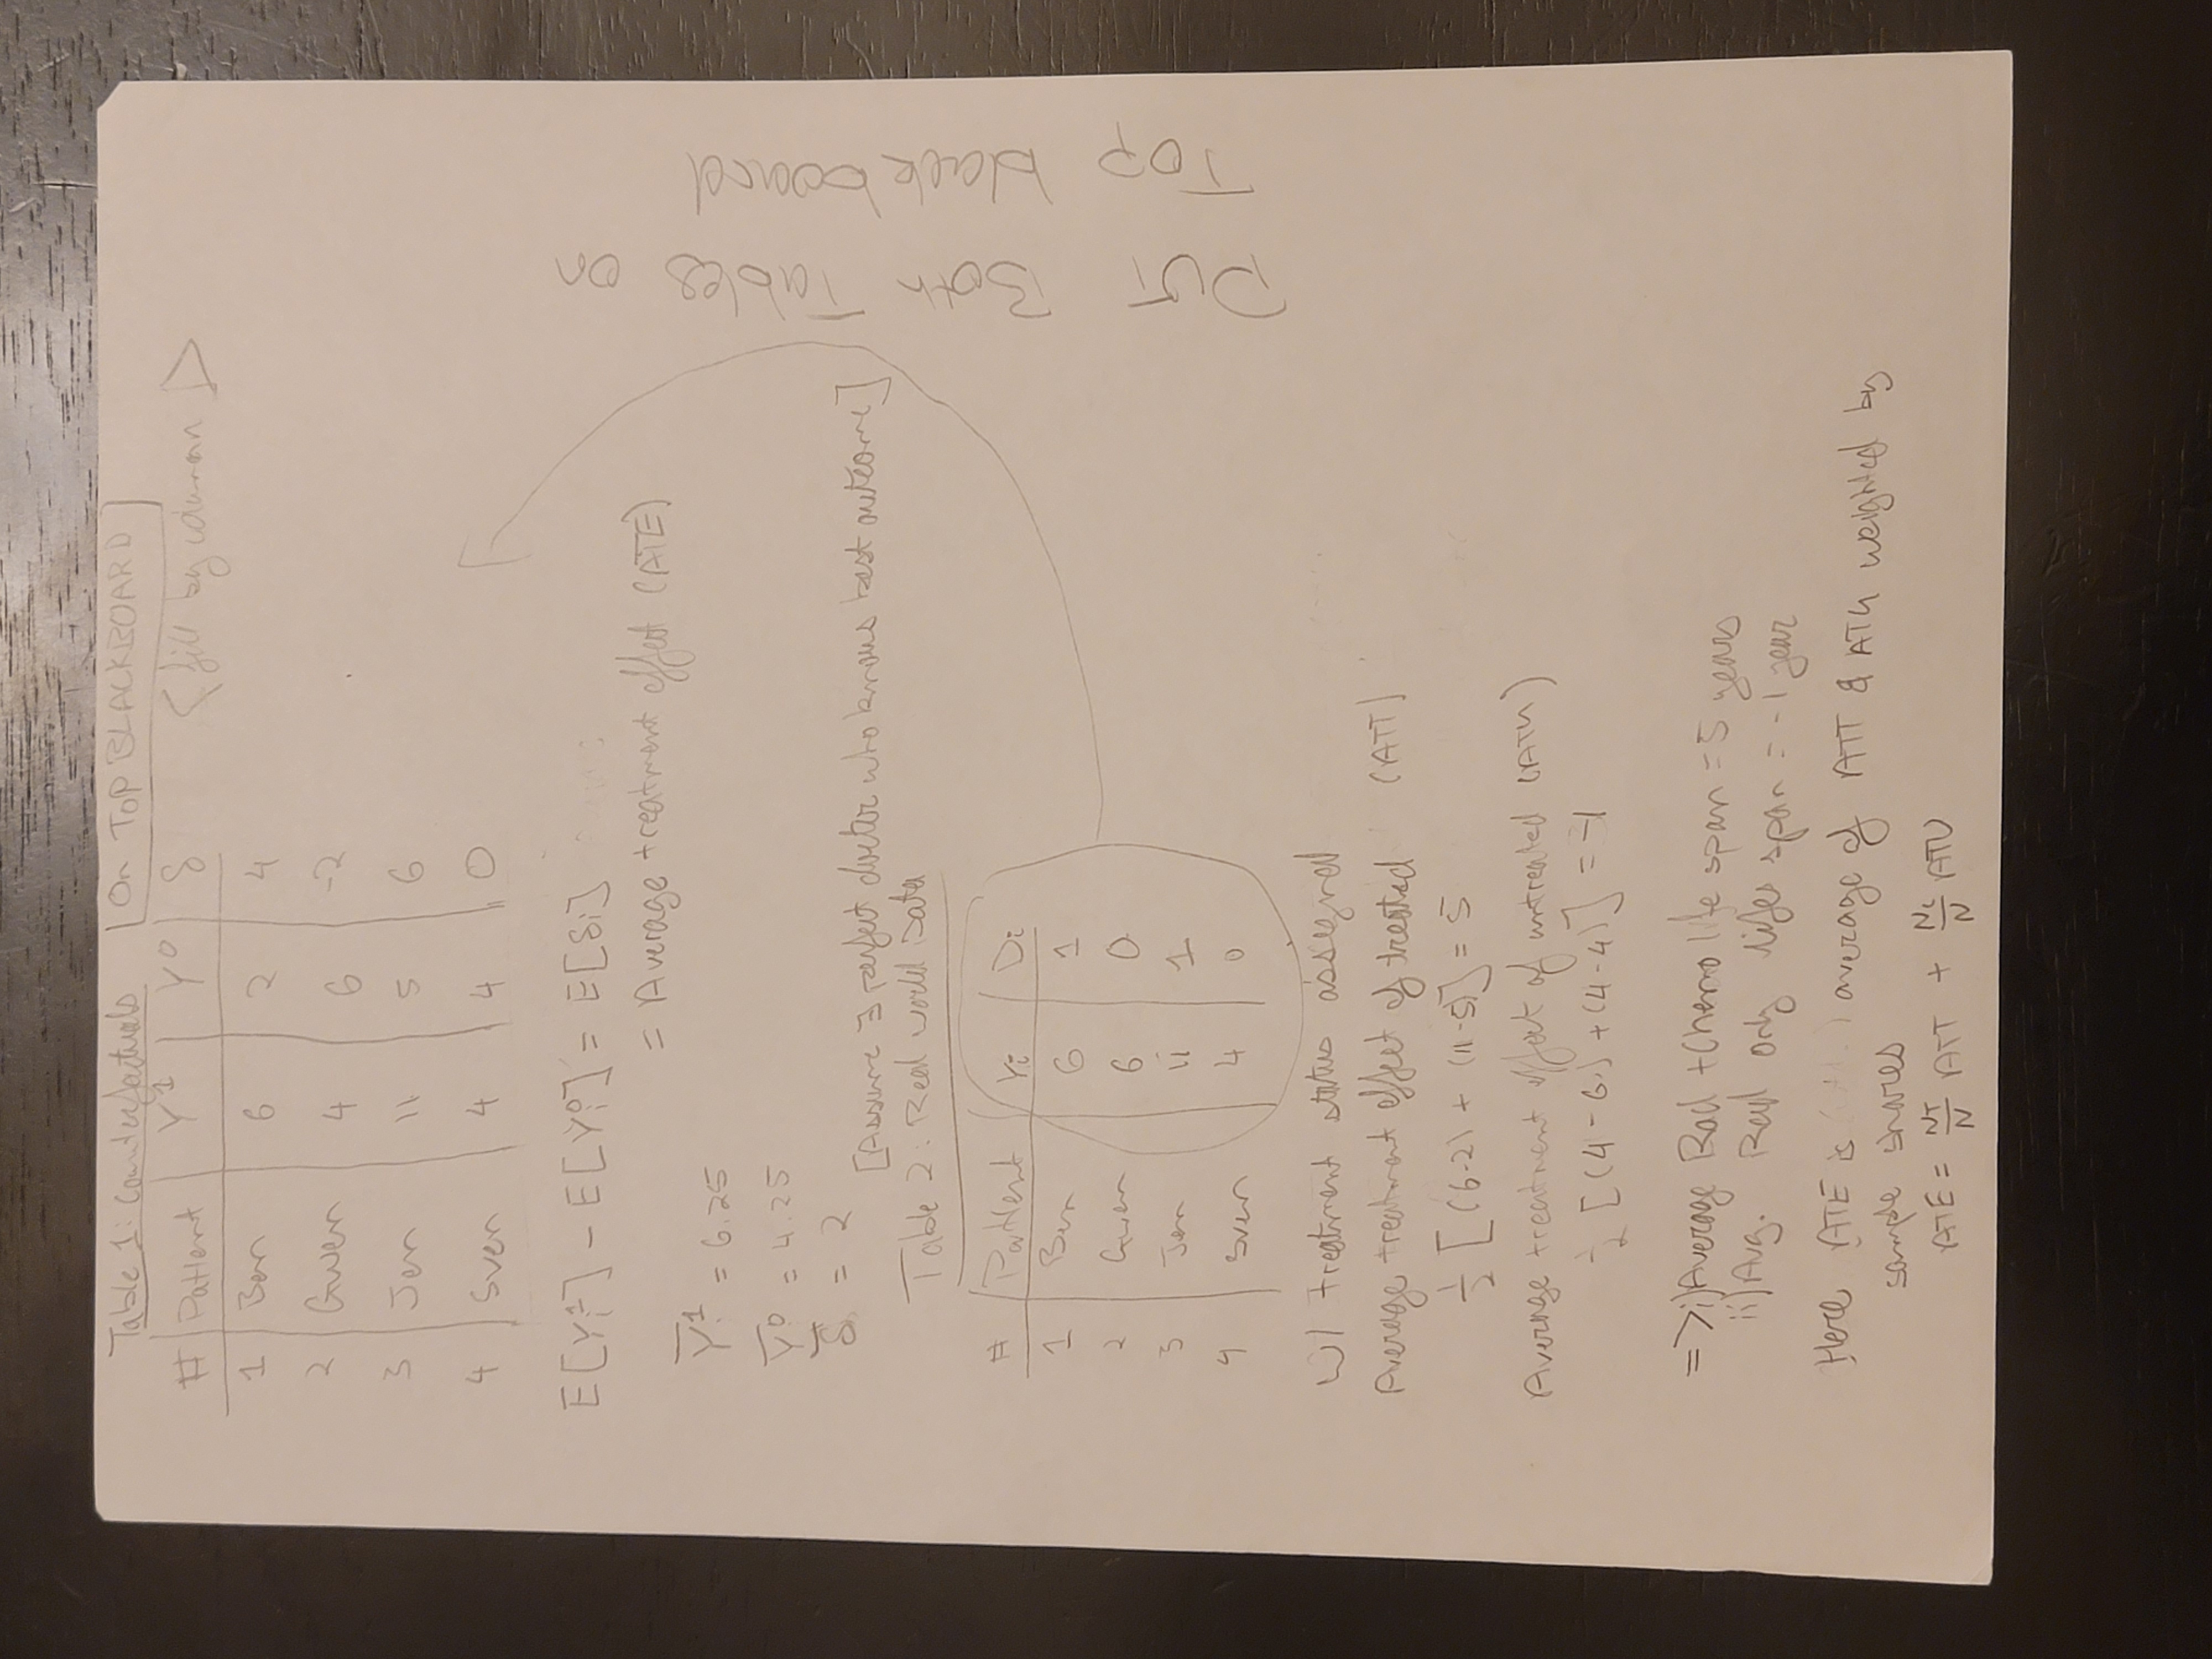 Table 1: Counterfactuals
On TOP BLACKBOARD
# Patient Y¹ Y⁰ δ
<fill by column>
1 Ben 6 2 4
2 Gwen 4 6 -2
3 Jen 11 5 6
4 Sven 4 4 0
E[Yᵢ¹] - E[Yᵢ⁰] = E[δᵢ]
= Average treatment effect (ATE)
Ȳ¹ = 6.25
Ȳ⁰ = 4.25
δ̄ = 2
[Assume ∃ perfect doctor who knows best outcome]
Table 2: Real world Data
# Patient Yᵢ Dᵢ
1 Ben 6 1
2 Gwen 6 0
3 Jen 11 1
4 Sven 4 0
w/ treatment status assigned
Average treatment effect of treated (ATT)
1/2 [(6-2) + (11-5)] = 5
Average treatment effect of untreated (ATU)
1/2 [(4-6) + (4-4)] = -1
=> i) Average Rad + Chemo life span = 5 years
ii) Avg. Rad only lifes span = -1 year
Here ATE is average of ATT & ATU weighted by
sample shares
ATE = NT/N ATT + Nc/N ATU
PUT Both Tables on
Top blackboard